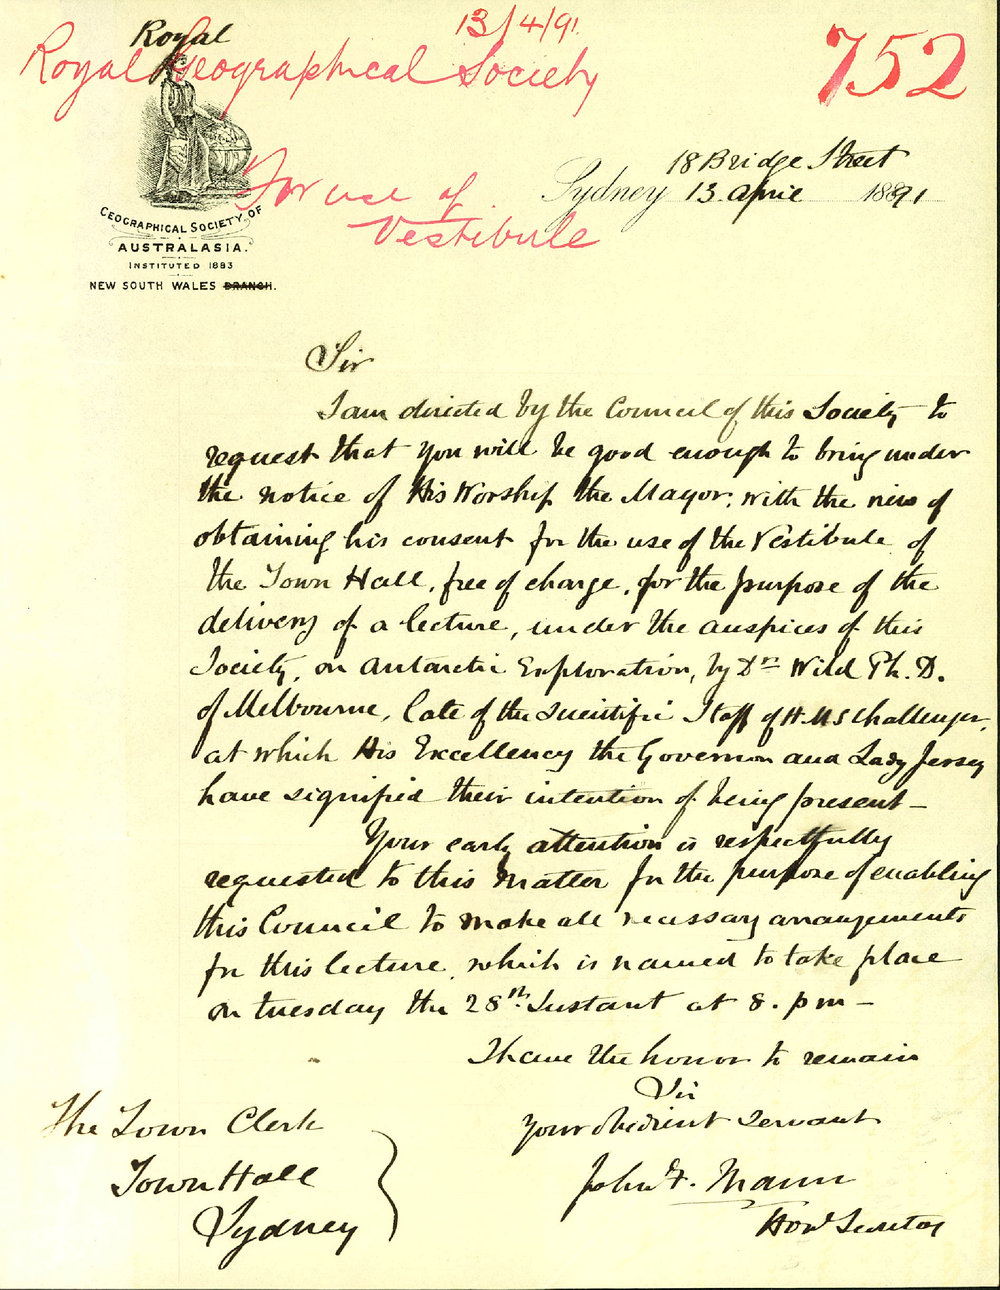 13/4/91.
Royal
Royal Geographical Society
752
For use of
Vestibule
18 Bridge Street
Sydney 13. April 1891
GEOGRAPHICAL SOCIETY OF
AUSTRALASIA.
INSTITUTED 1883
NEW SOUTH WALES BRANCH.
Sir
I am directed by the Council of this Society to
request that you will be good enough to bring under
the notice of His Worship the Mayor, with the view of
obtaining his consent for the use of the Vestibule of
the Town Hall, free of charge, for the purpose of the
delivery of a lecture, under the auspices of this
Society, on Antarctic Exploration, by Dr Wild Ph. D.
of Melbourne, late of the Scientific Staff of H.M.S Challenger,
at which His Excellency the Governor and Lady Jersey
have signified their intention of being present -
Your early attention is respectfully
requested to this matter for the purpose of enabling
this Council to make all necessary arrangements
for this lecture, which is named to take place
on tuesday the 28th Instant at 8. pm -
I have the honor to remain
Sir
Your obedient Servant
John F. Mann
Hon Secretary
The Town Clerk
Town Hall
Sydney